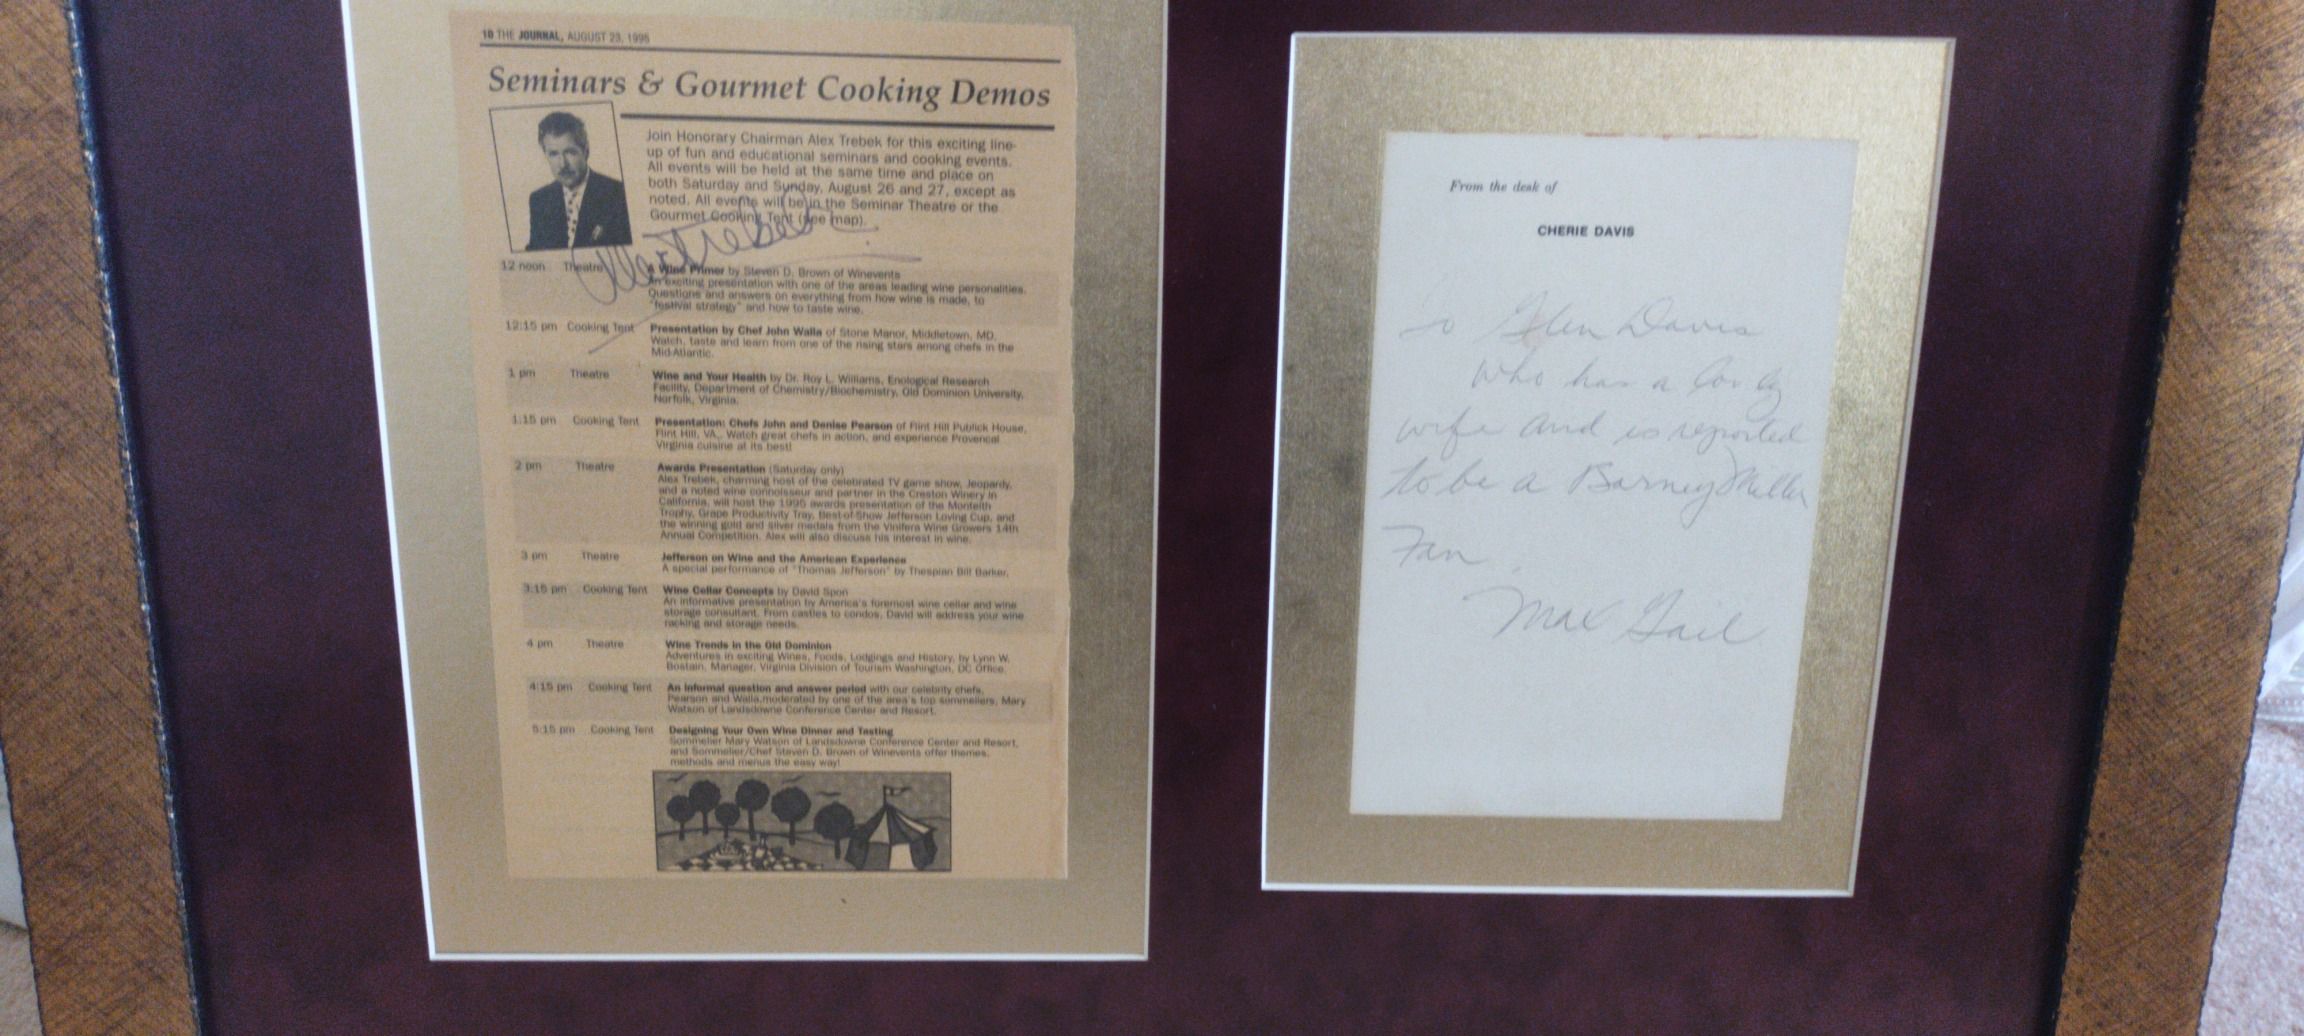 10 THE JOURNAL, AUGUST 23, 1995
Seminars & Gourmet Cooking Demos
Join Honorary Chairman Alex Trebek for this exciting line-
up of fun and educational seminars and cooking events.
All events will be held at the same time and place on
both Saturday and Sunday, August 26 and 27, except as
noted. All events will be in the Seminar Theatre or the
Gourmet Cooking Tent (see map).
Alex Trebek
12 noon Theatre A Wine Primer by Steven D. Brown of Winevents
An exciting presentation with one of the areas leading wine personalities.
Questions and answers on everything from how wine is made, to
"festival strategy" and how to taste wine.
12:15 pm Cooking Tent Presentation by Chef John Walla of Stone Manor, Middletown, MD.
Watch, taste and learn from one of the rising stars among chefs in the
Mid-Atlantic.
1 pm Theatre Wine and Your Health by Dr. Roy L. Williams, Enological Research
Facility, Department of Chemistry/Biochemistry, Old Dominion University,
Norfolk, Virginia.
1:15 pm Cooking Tent Presentation: Chefs John and Denise Pearson of Flint Hill Publick House,
Flint Hill, VA. Watch great chefs in action, and experience Provencal
Virginia cuisine at its best!
2 pm Theatre Awards Presentation (Saturday only)
Alex Trebek, charming host of the celebrated TV game show, Jeopardy,
and a noted wine connoisseur and partner in the Creston Winery in
California, will host the 1995 awards presentation of the Monteith
Trophy, Grape Productivity Tray, Best-of-Show Jefferson Loving Cup, and
the winning gold and silver medals from the Vinifera Wine Growers 14th
Annual Competition. Alex will also discuss his interest in wine.
3 pm Theatre Jefferson on Wine and the American Experience
A special performance of "Thomas Jefferson" by Thespian Bill Barker.
3:15 pm Cooking Tent Wine Cellar Concepts by David Spon
An informative presentation by America's foremost wine cellar and wine
storage consultant. From castles to condos, David will address your wine
racking and storage needs.
4 pm Theatre Wine Trends in the Old Dominion
Adventures in exciting Wines, Foods, Lodgings and History, by Lynn W.
Bostain, Manager, Virginia Division of Tourism Washington, DC Office.
4:15 pm Cooking Tent An informal question and answer period with our celebrity chefs,
Pearson and Walla,moderated by one of the area's top sommeliers, Mary
Watson of Landsdowne Conference Center and Resort.
5:15 pm Cooking Tent Designing Your Own Wine Dinner and Tasting
Sommelier Mary Watson of Landsdowne Conference Center and Resort,
and Sommelier/Chef Steven D. Brown of Winevents offer themes,
methods and menus the easy way!
From the desk of
CHERIE DAVIS
To Glen Davis
who has a lovely
wife and is reported
to be a Barney Miller
Fan.
Max Gail